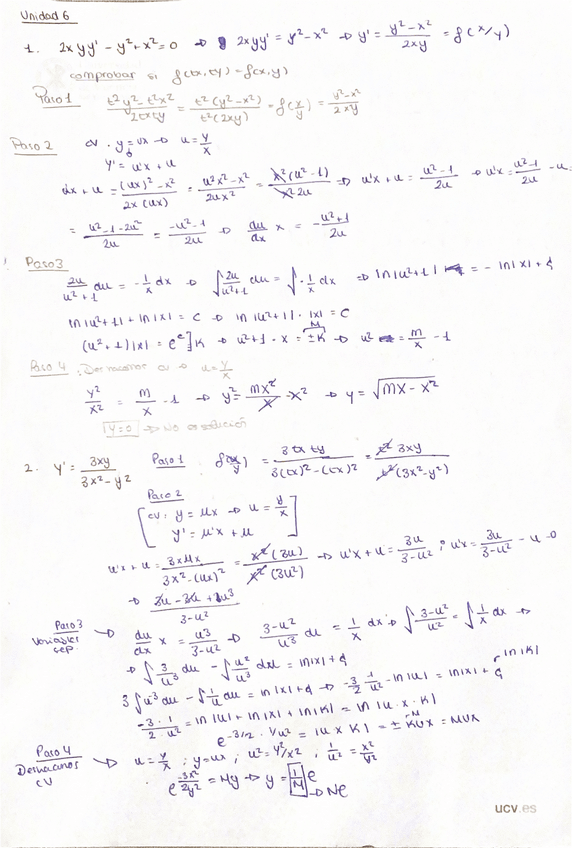 Unidad 6
1. 2xyy' - y² + x² = 0 → 2xyy' = y² - x² → y' = (y² - x²)/(2xy) = f(x/y)
comprobar si f(tx, ty) = f(x, y)
Paso 1 (t²y² - t²x²)/(2txty) = (t²(y² - x²))/(t²(2xy)) = f(x/y) = (y² - x²)/(2xy)
Paso 2 CV. y = ux → u = y/x
y' = u'x + u
u'x + u = ((ux)² - x²)/(2x(ux)) = (u²x² - x²)/(2ux²) = (x²(u² - 1))/(x² 2u) ⇒ u'x + u = (u² - 1)/(2u) → u'x = (u² - 1)/(2u) - u =
= (u² - 1 - 2u²)/(2u) = (-u² - 1)/(2u) ⇒ du/dx x = -(u² + 1)/(2u)
Paso 3
2u/(u² + 1) du = -1/x dx → ∫ 2u/(u² + 1) du = ∫ -1/x dx ⇒ ln|u² + 1| = - ln|x| + C
ln|u² + 1| + ln|x| = C → ln|u² + 1| · |x| = C
(u² + 1)|x| = e^c ] K → u² + 1 · x = ±K M → u² = m/x - 1
Paso 4 Deshacemos CV → u = y/x
y²/x² = m/x - 1 → y² = mx²/x - x² → y = √(mx - x²)
y = 0 → No es solución
2. y' = 3xy/(3x² - y²) Paso 1 f(x/y) = (3 tx ty)/(3(tx)² - (tx)²) = (t² 3xy)/(t² (3x² - y²))
Paso 2
[CV: y = ux → u = y/x
y' = u'x + u]
u'x + u = (3xux)/(3x² - (ux)²) = (x²(3u))/(x²(3u²)) → u'x + u = 3u/(3 - u²); u'x = 3u/(3 - u²) - u →
→ (3u - 3u + u³)/(3 - u²)
Paso 3 Variables sep. → du/dx x = u³/(3 - u²) → (3 - u²)/u³ du = 1/x dx → ∫ (3 - u²)/u² = ∫ 1/x dx →
→ ∫ 3/u³ du - ∫ u²/u³ du = ln|x| + C
3 ∫ u⁻³ du - ∫ 1/u du = ln|x| + C → -3/2 1/u² - ln|u| = ln|x| + C ln|K|
-3/2 · 1/u² = ln|u| + ln|x| + ln|K| = ln|u · x · K|
e^(-3/2 · 1/u²) = |u x K| = ± KUX = MUX
Paso 4 Deshacemos CV → u = y/x ; y = ux ; u² = y²/x² ; 1/u² = x²/y²
e^(-3x²/2y²) = My → y = [1/M] e
→ Ne
ucv.es